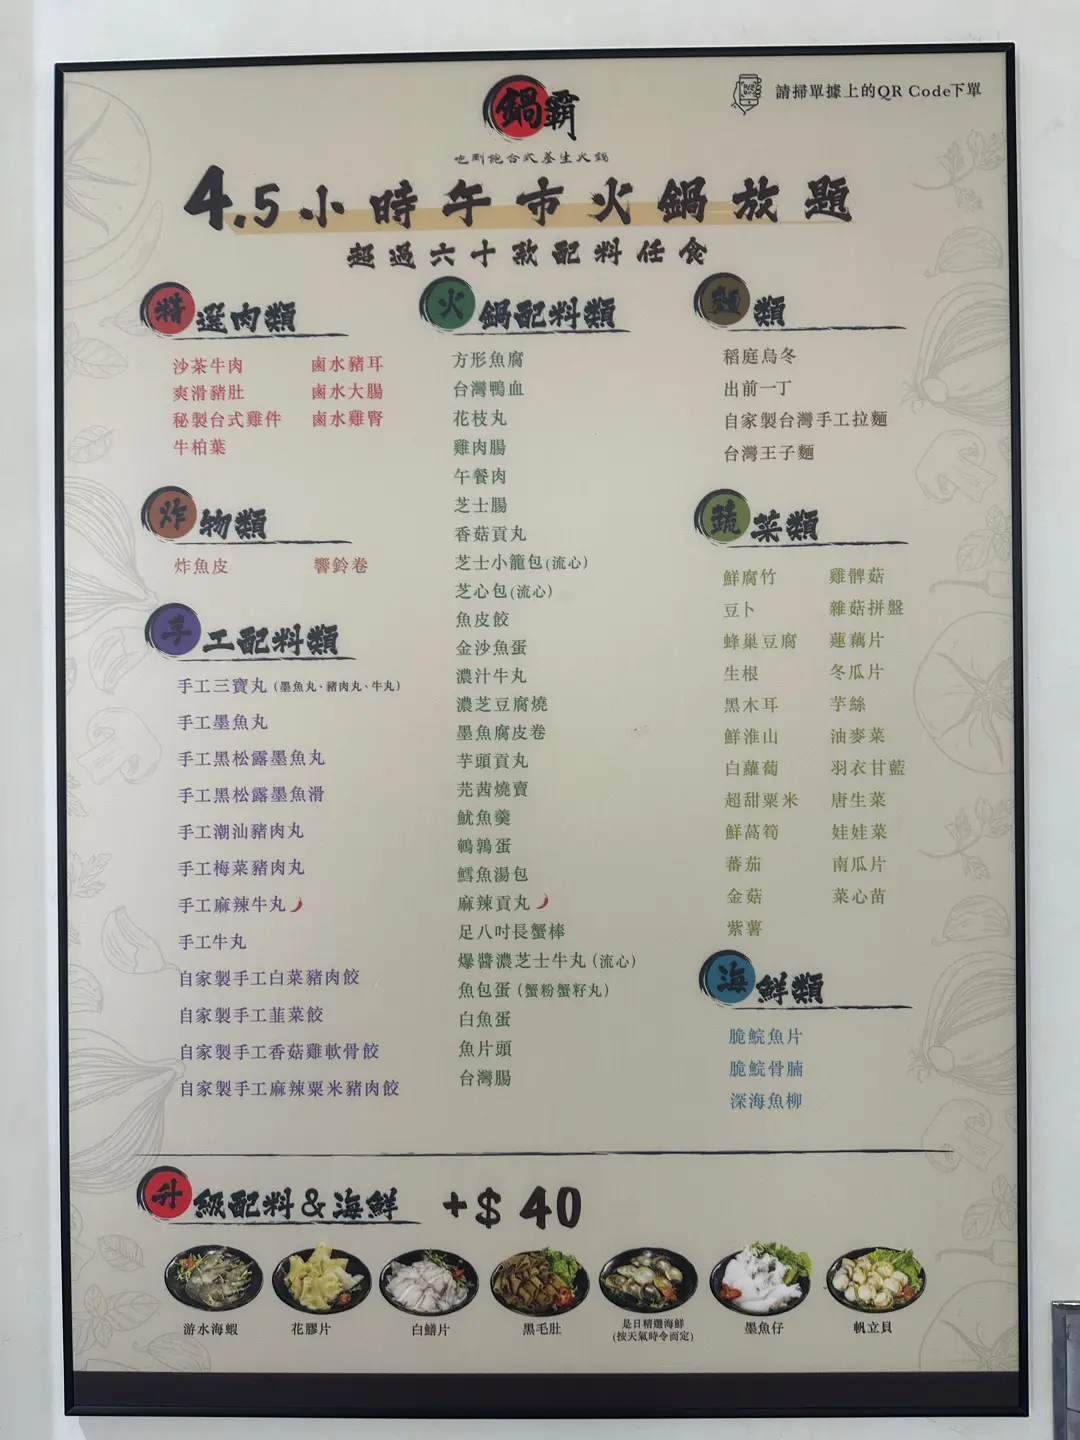 請掃單據上的QR Code下單
鍋霸
吃到飽台式養生火鍋
4.5小時午市火鍋放題
超過六十款配料任食
精選肉類
沙茶牛肉 鹵水豬耳
爽滑豬肚 鹵水大腸
秘製台式雞件 鹵水雞腎
牛柏葉
炸物類
炸魚皮 響鈴卷
手工配料類
手工三寶丸（墨魚丸、豬肉丸、牛丸）
手工墨魚丸
手工黑松露墨魚丸
手工黑松露墨魚滑
手工潮汕豬肉丸
手工梅菜豬肉丸
手工麻辣牛丸
手工牛丸
自家製手工白菜豬肉餃
自家製手工韮菜餃
自家製手工香菇雞軟骨餃
自家製手工麻辣粟米豬肉餃
火鍋配料類
方形魚腐
台灣鴨血
花枝丸
雞肉腸
午餐肉
芝士腸
香菇貢丸
芝士小籠包(流心)
芝心包(流心)
魚皮餃
金沙魚蛋
濃汁牛丸
濃芝豆腐燒
墨魚腐皮卷
芋頭貢丸
芫茜燒賣
魷魚羹
鵪鶉蛋
鱈魚湯包
麻辣貢丸
足八吋長蟹棒
爆醬濃芝士牛丸（流心）
魚包蛋（蟹粉蟹籽丸）
白魚蛋
魚片頭
台灣腸
麵類
稻庭烏冬
出前一丁
自家製台灣手工拉麵
台灣王子麵
蔬菜類
鮮腐竹 雞髀菇
豆卜 雜菇拼盤
蜂巢豆腐 蓮藕片
生根 冬瓜片
黑木耳 芋絲
鮮淮山 油麥菜
白蘿蔔 羽衣甘藍
超甜粟米 唐生菜
鮮萵筍 娃娃菜
蕃茄 南瓜片
金菇 菜心苗
紫薯
海鮮類
脆鯇魚片
脆鯇骨腩
深海魚柳
升級配料＆海鮮 +$ 40
游水海蝦
花膠片
白鱔片
黑毛肚
是日精選海鮮
(按天氣時令而定)
墨魚仔
帆立貝